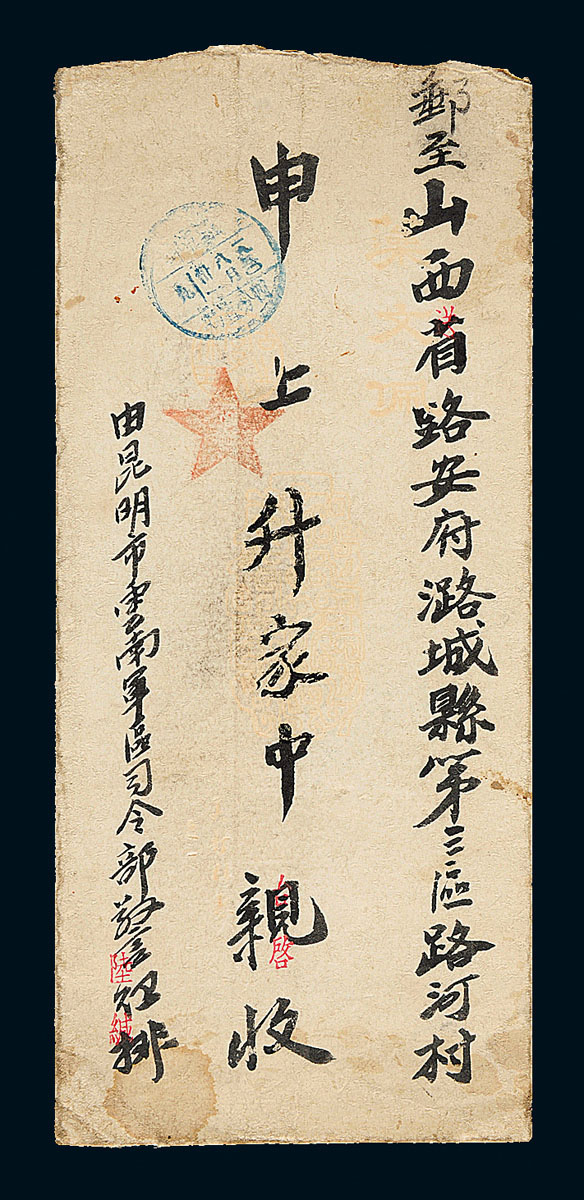 郵至山西省路安府潞城縣第三區路河村
申上升家中親收
啓
由昆明市雲南軍區司令部警 排
陸
緘